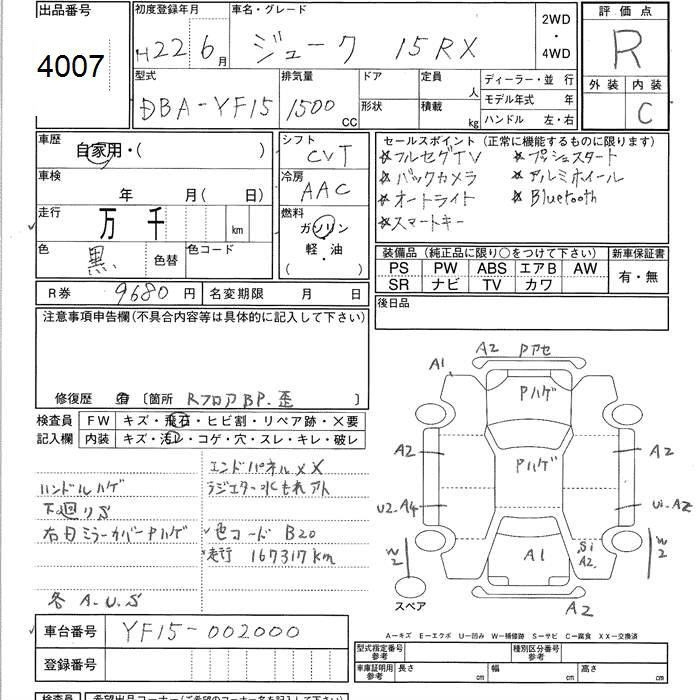 出品番号
4007
初度登録年月
H22 6月
車名・グレード
ジューク 15RX
2WD
・
4WD
評価点
R
外装 内装
C
型式
DBA-YF15
排気量
1500 CC
ドア
形状
定員 人
積載 kg
ディーラー・並行
モデル年式 年
ハンドル 左・右
車歴
自家用・( )
車検
年 月( 日)
走行
万 千 km
色
黒 色替
色コード
シフト
CVT
冷房
AAC
燃料
ガソリン
軽・油
( )
セールスポイント (正常に機能するものに限ります)
☆フルセグTV ☆プッシュスタート
☆バックカメラ ☆アルミホイール
☆オートライト ☆Bluetooth
☆スマートキー
装備品 (純正品に限り○をつけて下さい)
PS PW ABS エアB AW
SR ナビ TV カワ
新車保証書
有・無
R券 9680円
名変期限 月 日
後日品
注意事項申告欄(不具合内容等は具体的に記入して下さい)
修復歴 有 〔箇所 RフロアBP.歪 〕
検査員
記入欄
FW キズ・飛石・ヒビ割・リペア跡・X要
内装 キズ・汚レ・コゲ・穴・スレ・キレ・破レ
エンドパネルXX
ハンドルハゲ
ラジエター水もれアト
下廻りS
右ミラーカバーPハゲ
色コード B20
走行 167317km
各 A.U.S
車台番号 YF15-002000
登録番号
A2 Pアセ
A1
Pハゲ
A2
Pハゲ
A2
U2.A4
Ui.A2
W2
A1
Si
A2
W2
スペア
A2
A－キズ E－エクボ U－凹み W－補修跡 S－サビ C－腐食 XX－交換済
型式指定番号
参考
種別区分番号
参考
車庫証明用
参考
長さ cm 幅 cm 高さ cm
検査員 希望出品コーナー(ご希望のコーナー名を記入下さい)